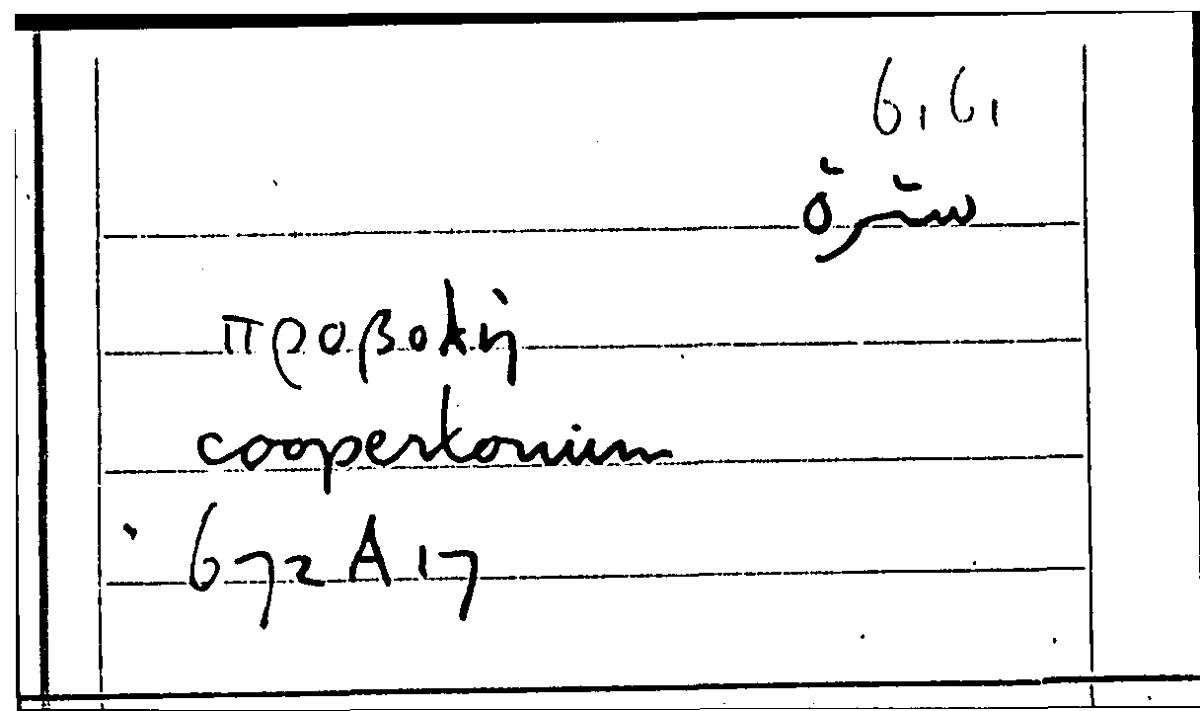 6,6,
سترة
προβολή
coopertorium
672A17